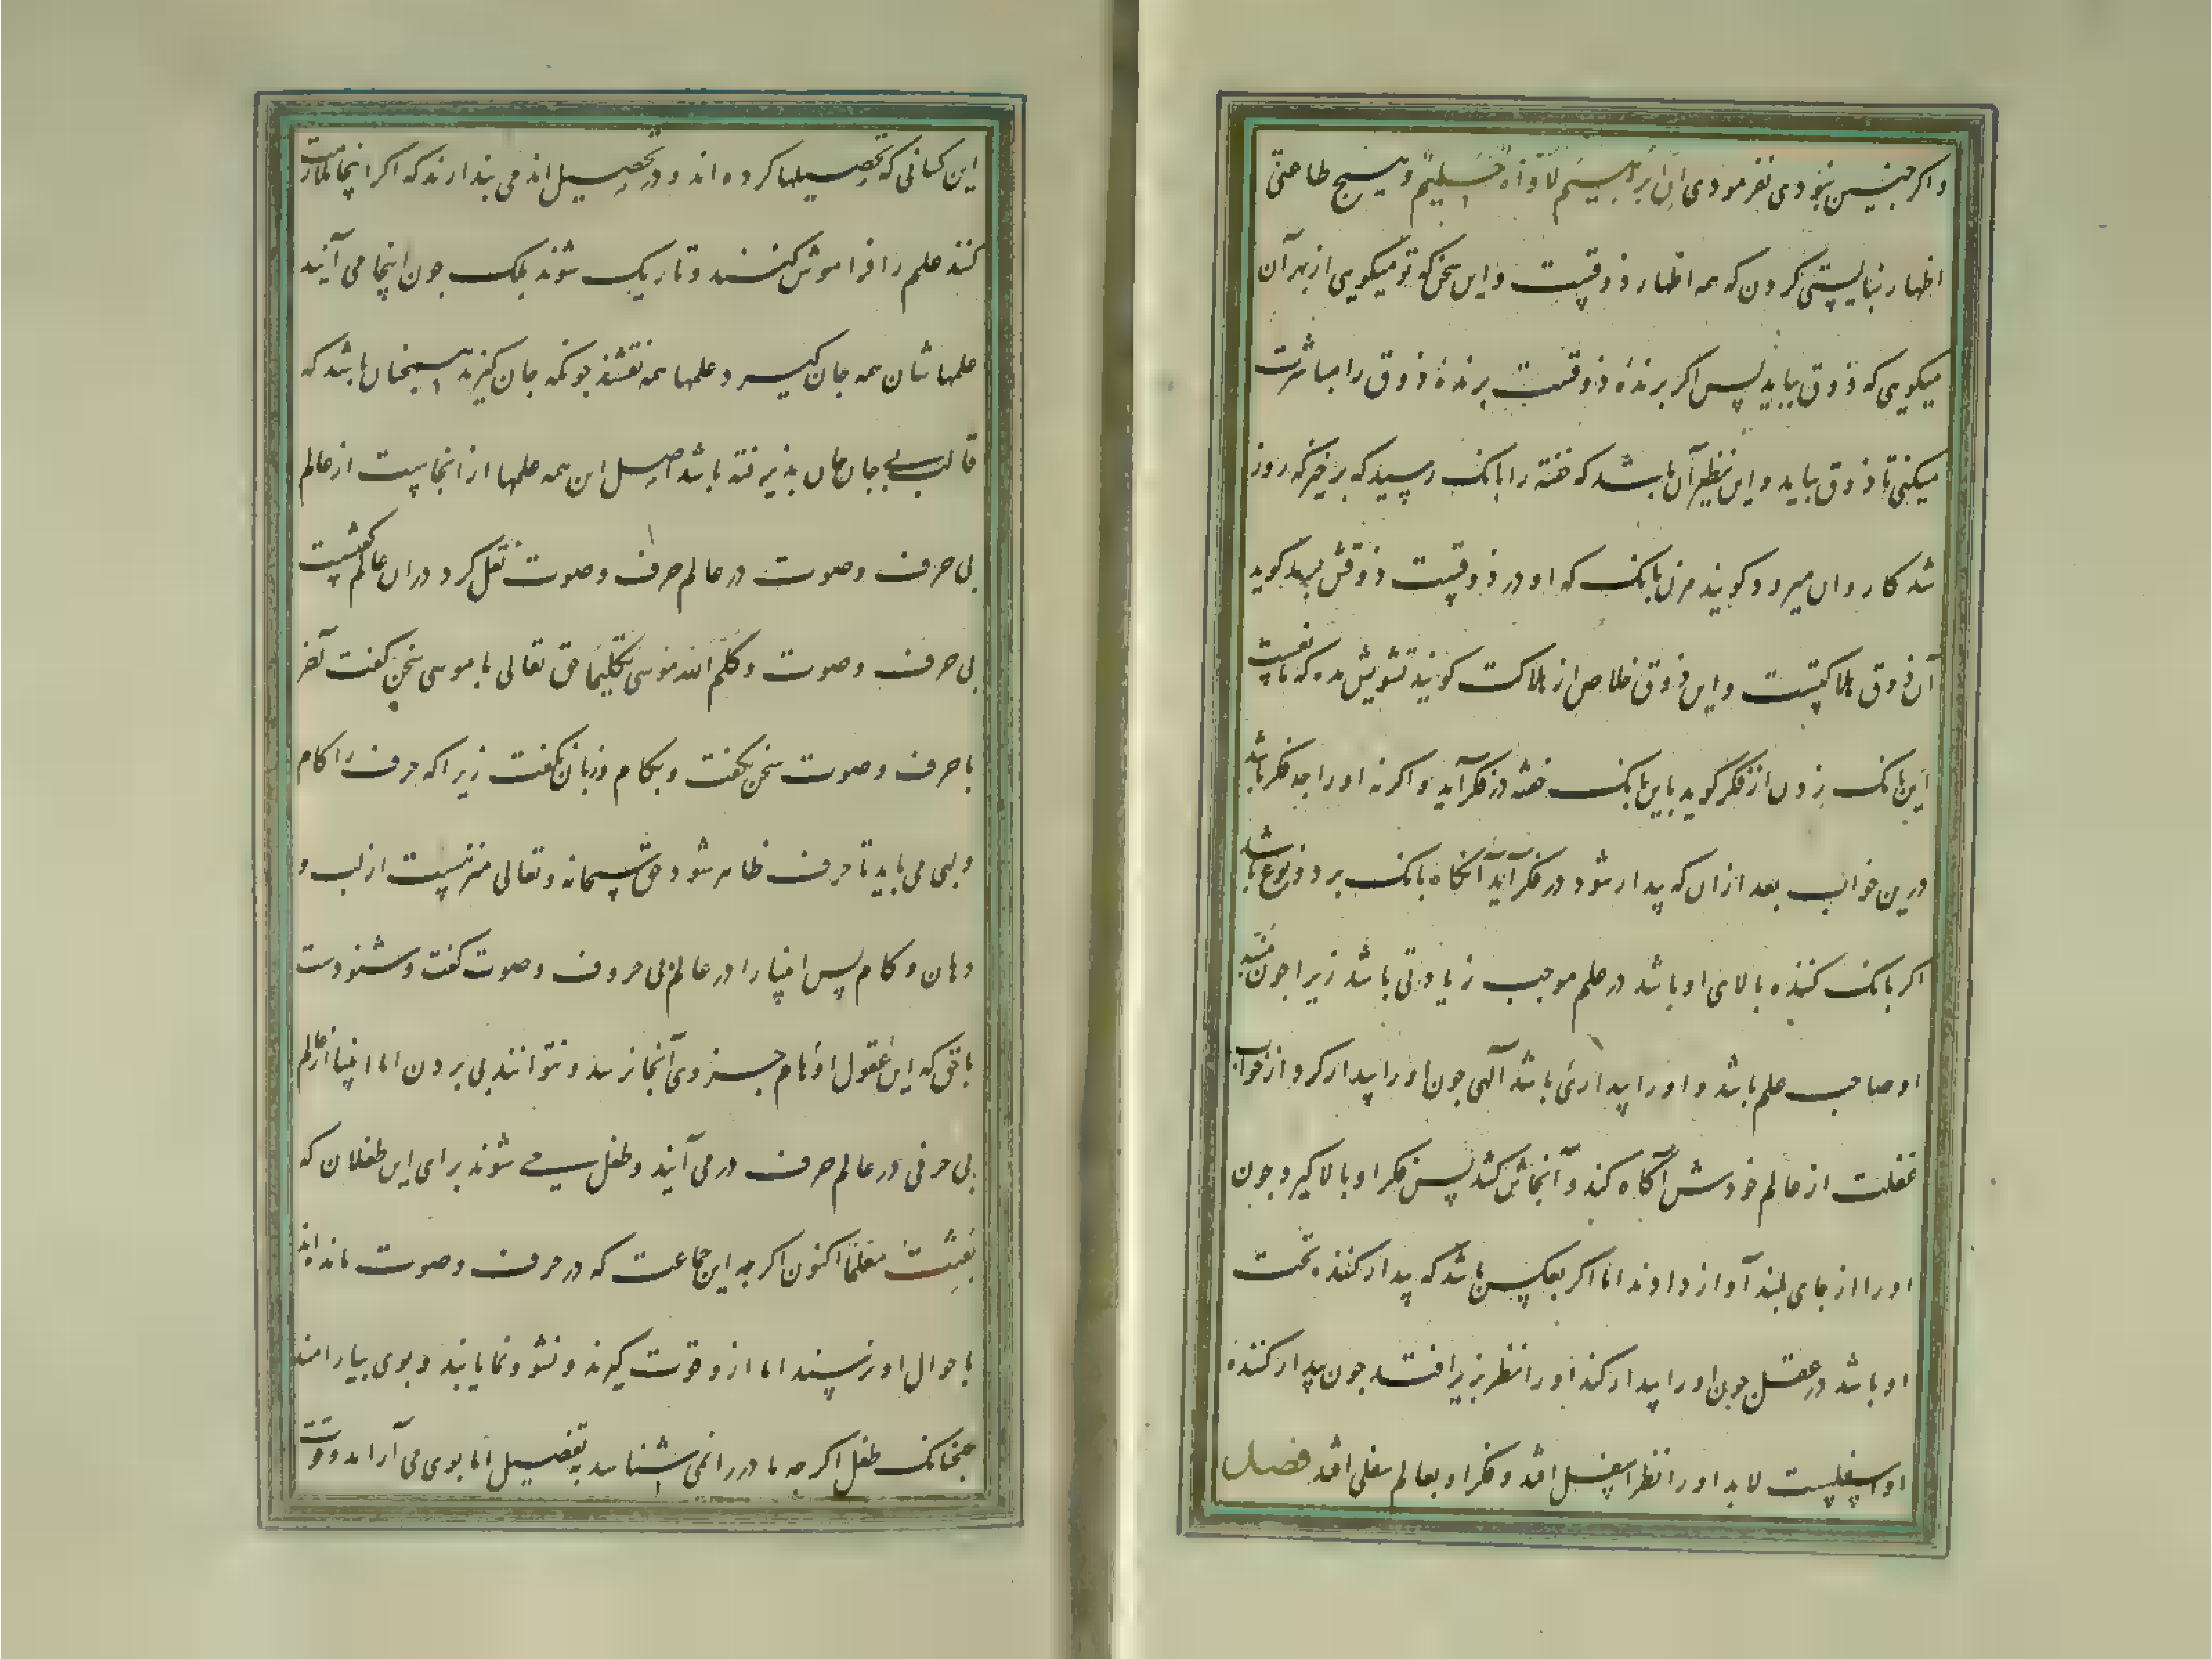 و اکر جنین نبودی نفرمودی اِنَّ ابْرٰهیمَ لَاَوّاهٌ حَلیمٌ و هیچ طاعتی
اظهار نبایستی کردن که همه اظهار ذوقیست و این سخن که تو میکویی از بهر آن
میکویی که ذوق بیاید پس اکر برندۀ ذوقست برندۀ ذوق را مباشرت
میکنی تا ذوق بیاید و این نظیر آن باشد که خفته را بانک رسید که برخیز که روز
شد کاروان میرود کویند مزن بانک که او در ذوقیست ذوقش بهد کوید
آن ذوق هلاکتیست و این ذوق خلاص از هلاکت کویند تشویش مده که مانعست
این بانک زدن از فکر کوید باین بانک خفته در فکر آید و اکر نه او را جه فکر باشد
درین خواب بعد از ان که پیدار شود در فکر آید آنکاه بانک بر دو نوع باشد
اکر بانک کننده بالای او باشد در علم موجب زیادتی باشد زیرا جون منبه
او صاحب علم باشد و او را پیدارئ باشد آلهی جون او را پیدار کرد از خواب
غفلت از عالم خودش آکاه کند و آنجاش کشد پس فکر او بالا کیرد جون
او را از جای بلند آواز دادند اما اکر بعکس باشد که پیدار کننده تحت
او باشد در عقل جون او را پیدار کند او را نظر بزیر افتد جون پیدار کننده
او اسفلیست لابد او را نظر اسفل افتد و فکر او بعالم سفلی افتد فصل
این کسانی که تحصیلها کرده اند و در تحصیل اند می پندارند که اکر اینجا ملازمت
کنند علم را فراموش کنند و تاریک شوند بلک جون اینجا می آیند
علمهاشان همه جان کیرد علمها همه نقشند جونکه جان کیرند همجنان باشد که
قالب بی جان جان پذیرفته باشد اصل این همه علمها از انجاست از عالم
بی حرف و صوت در عالم حرف و صوت نقل کرد در ان عالم کفتست
بی حرف و صوت و کلّم الله موسی تکلیمًا حق تعالی با موسی سخن کفت آخر
با حرف و صوت سخن نکفت و بکام و زبان نکفت زیرا که حرف را کام
و لبی می باید تا حرف ظاهر شود حق سبحانه و تعالی منزهست از لب و
دهان و کام پس انبیا را در عالم بی حروف و صوت کفت و شنودست
با حق که این عقول اوهام جزوی آنجا نرسد و نتوانند پی بردن اما انبیا از عالم
بی حرفی در عالم حرف در می آیند و طفل می شوند برای این طفلان که
بُعِثْتُ مُعَلِّمًا اکنون اکر جه این جماعت که در حرف و صوت مانده اند
باحوال او نرسند اما از و قوت کیرند و نشو و نما یابند و بوی بیارامند
همجنانک طفل اکر جه مادر را نمی شناسد بتفصیل اما بوی می آرامد و قوت